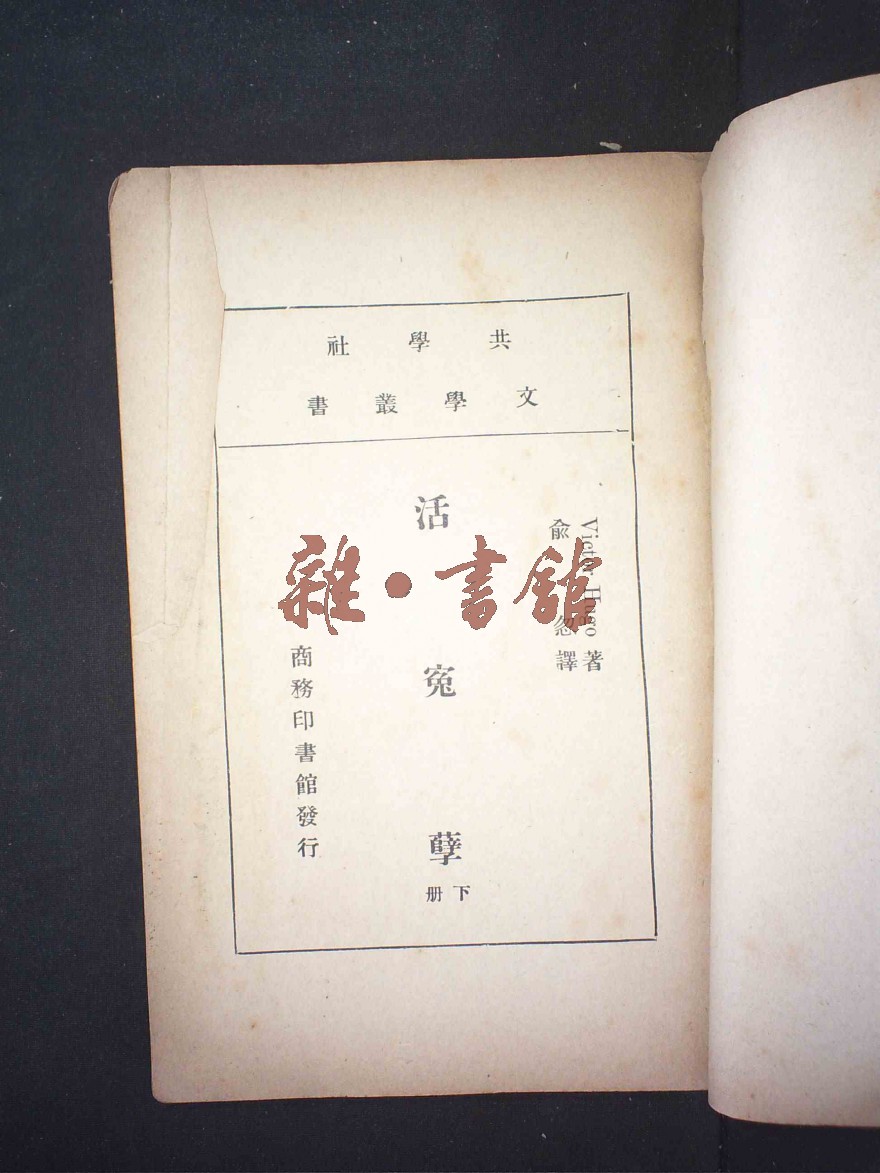 共學社
文學叢書
Victor Hugo 著
俞忽譯
活冤孽
下册
商務印書館發行
雜·書館